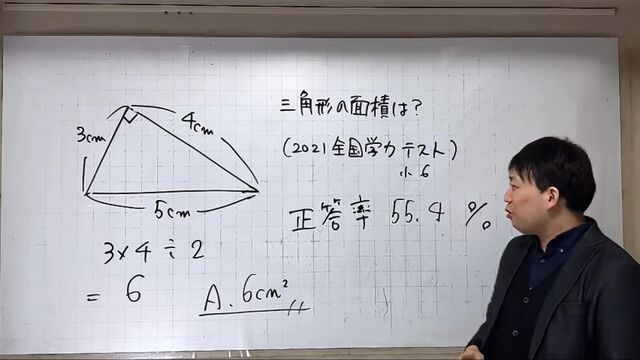 3cm
4cm
5cm
3×4÷2
= 6
A. 6cm²
三角形の面積は?
(2021全国学力テスト)
小6
正答率 55.4 %